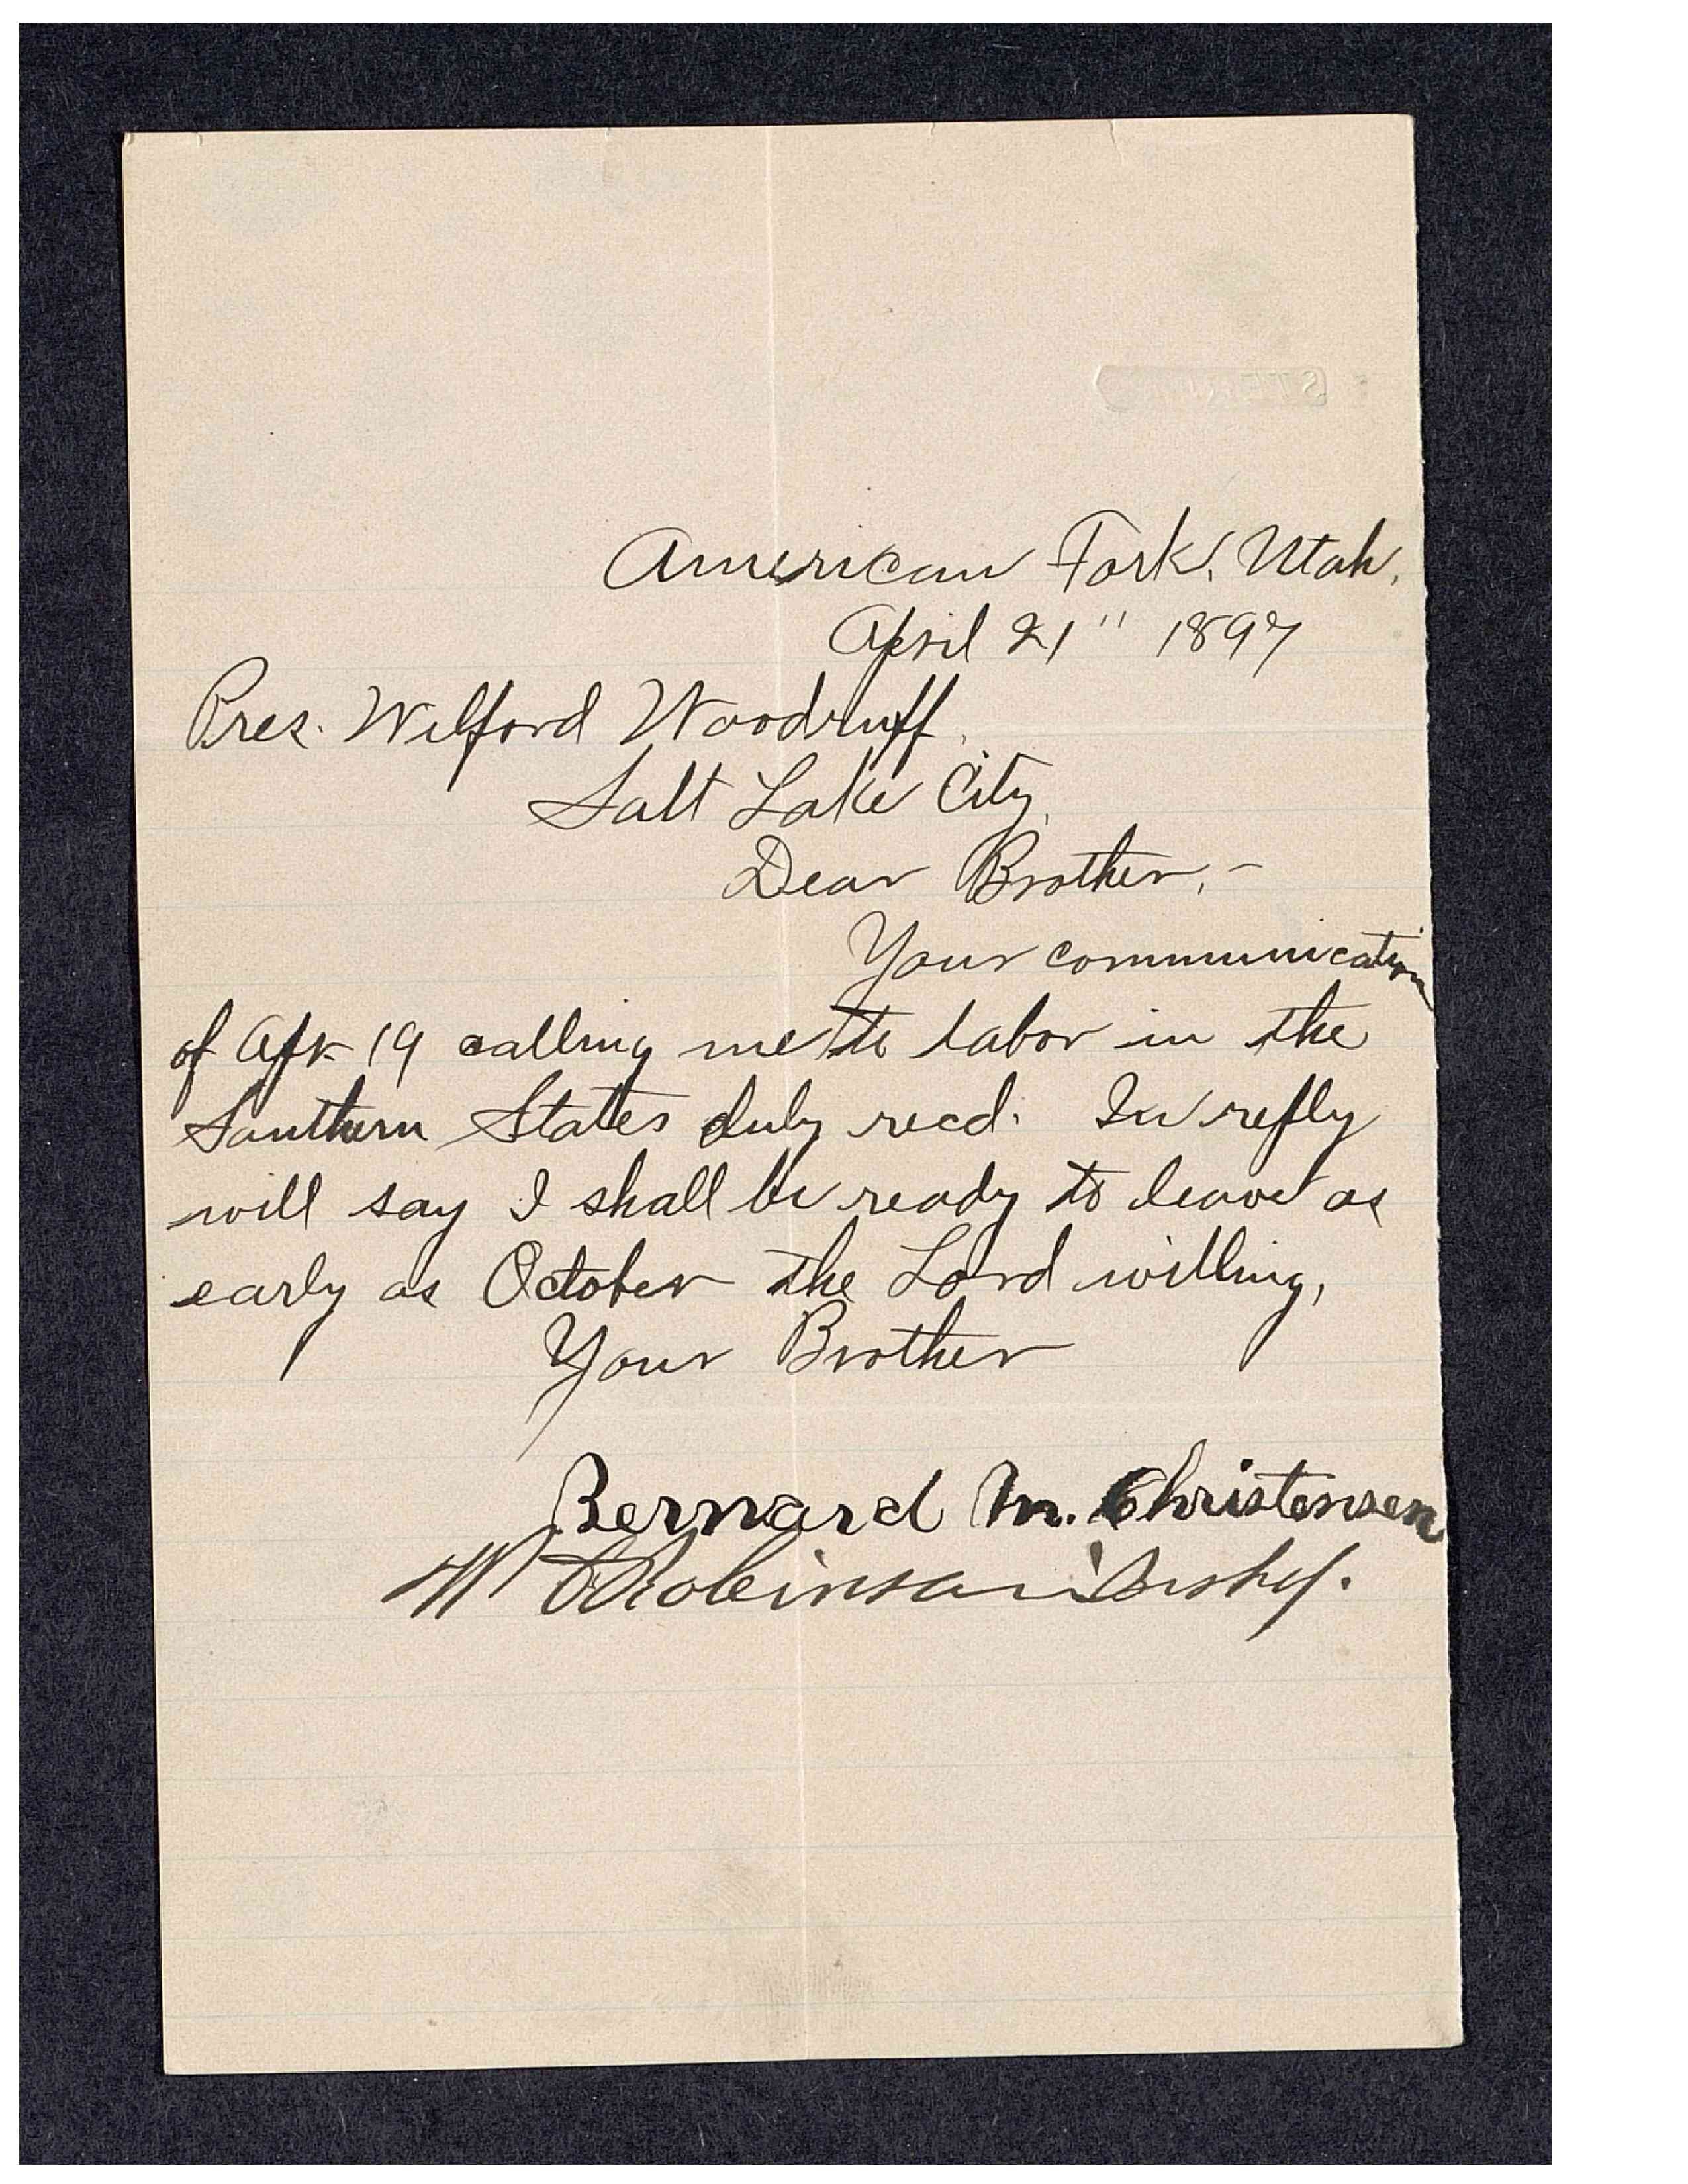 American Fork, Utah.
April 21" 1897
Pres. Wilford Woodruff,
Salt Lake City,
Dear Brother,-
Your communication
of Apr 19 calling me to labor in the
Southern States duly recd. In reply
will say I shall be ready to leave as
early as October the Lord willing,
Your Brother
Bernard M. Christensen
Robinson Bishop.